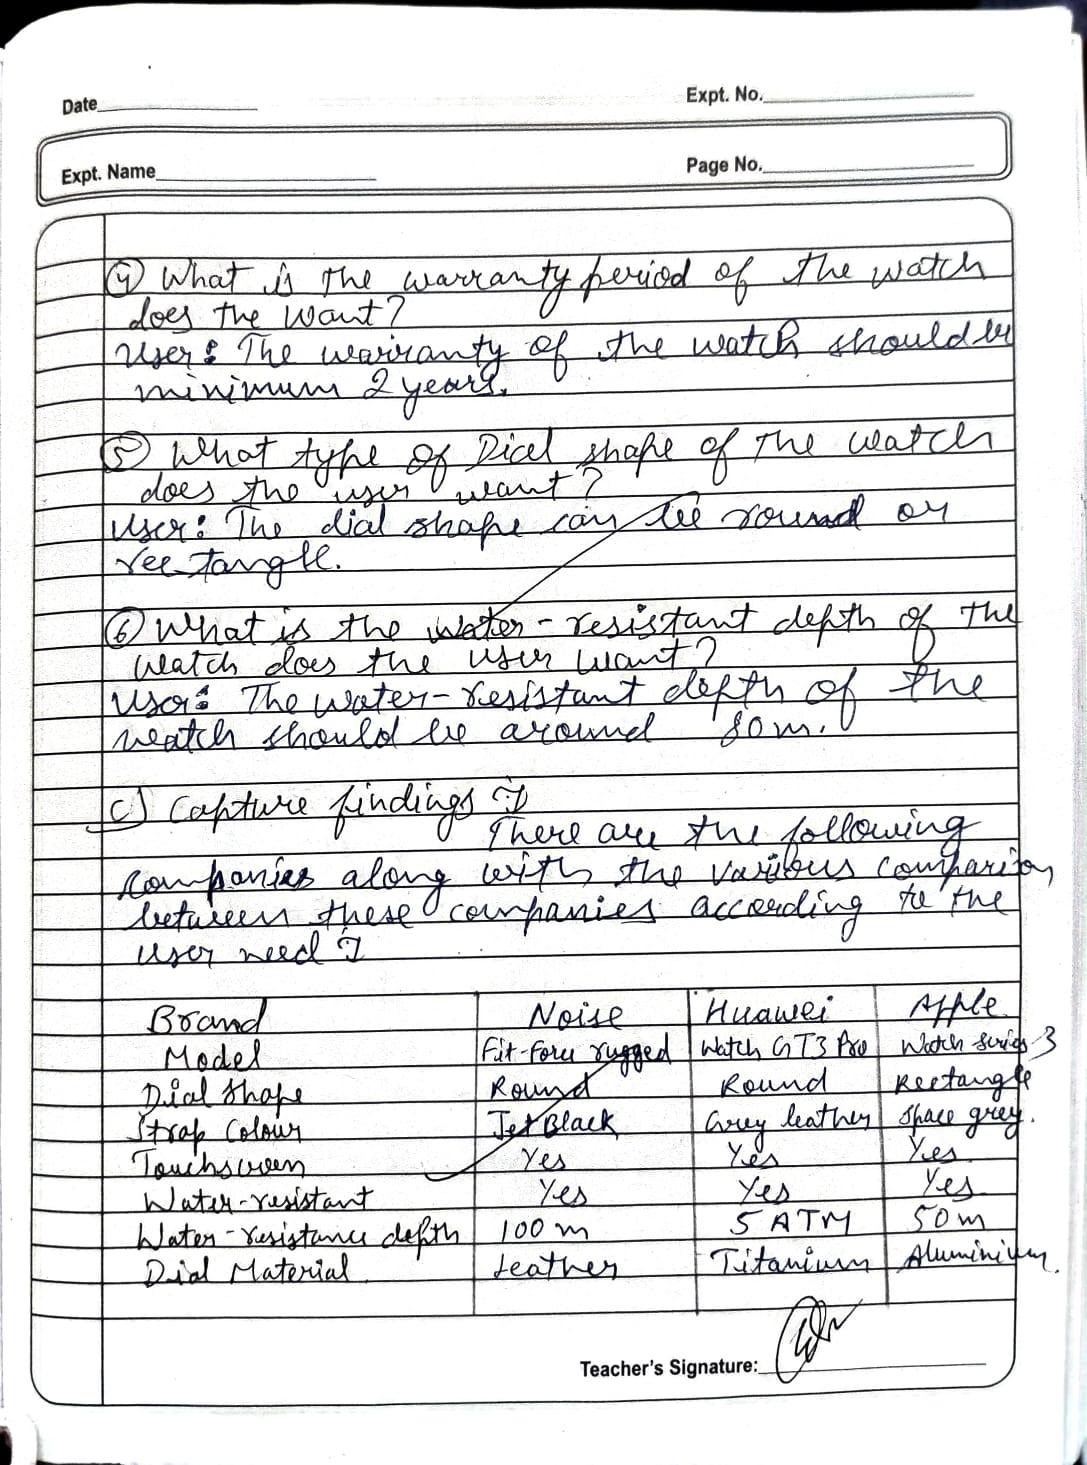 Date
Expt. No.
Expt. Name
Page No.
④ What is the warranty period of the watch
does the want?
User: The warranty of the watch should be
minimum 2 years.
⑤ What type of Dial shape of the watch
does the user want?
User: The dial shape can be round or
rectangle.
⑥ What is the water-resistant depth of the
watch does the user want?
User: The water-resistant depth of the
watch should be around 80m.
c) Capture findings :-
There are the following
companies along with the various comparison
between these companies according to the
user need :-
Brand Noise Huawei Apple
Model Fit-Force rugged Watch GT3 Pro Watch Series-3
Dial Shape Round Round Rectangle
Strap Colour Jet Black Grey leather Space grey.
Touchscreen Yes Yes Yes
Water-resistant Yes Yes Yes
Water-resistance depth 100 m 5 ATM 50m
Dial Material Leather Titanium Aluminium.
Teacher's Signature: